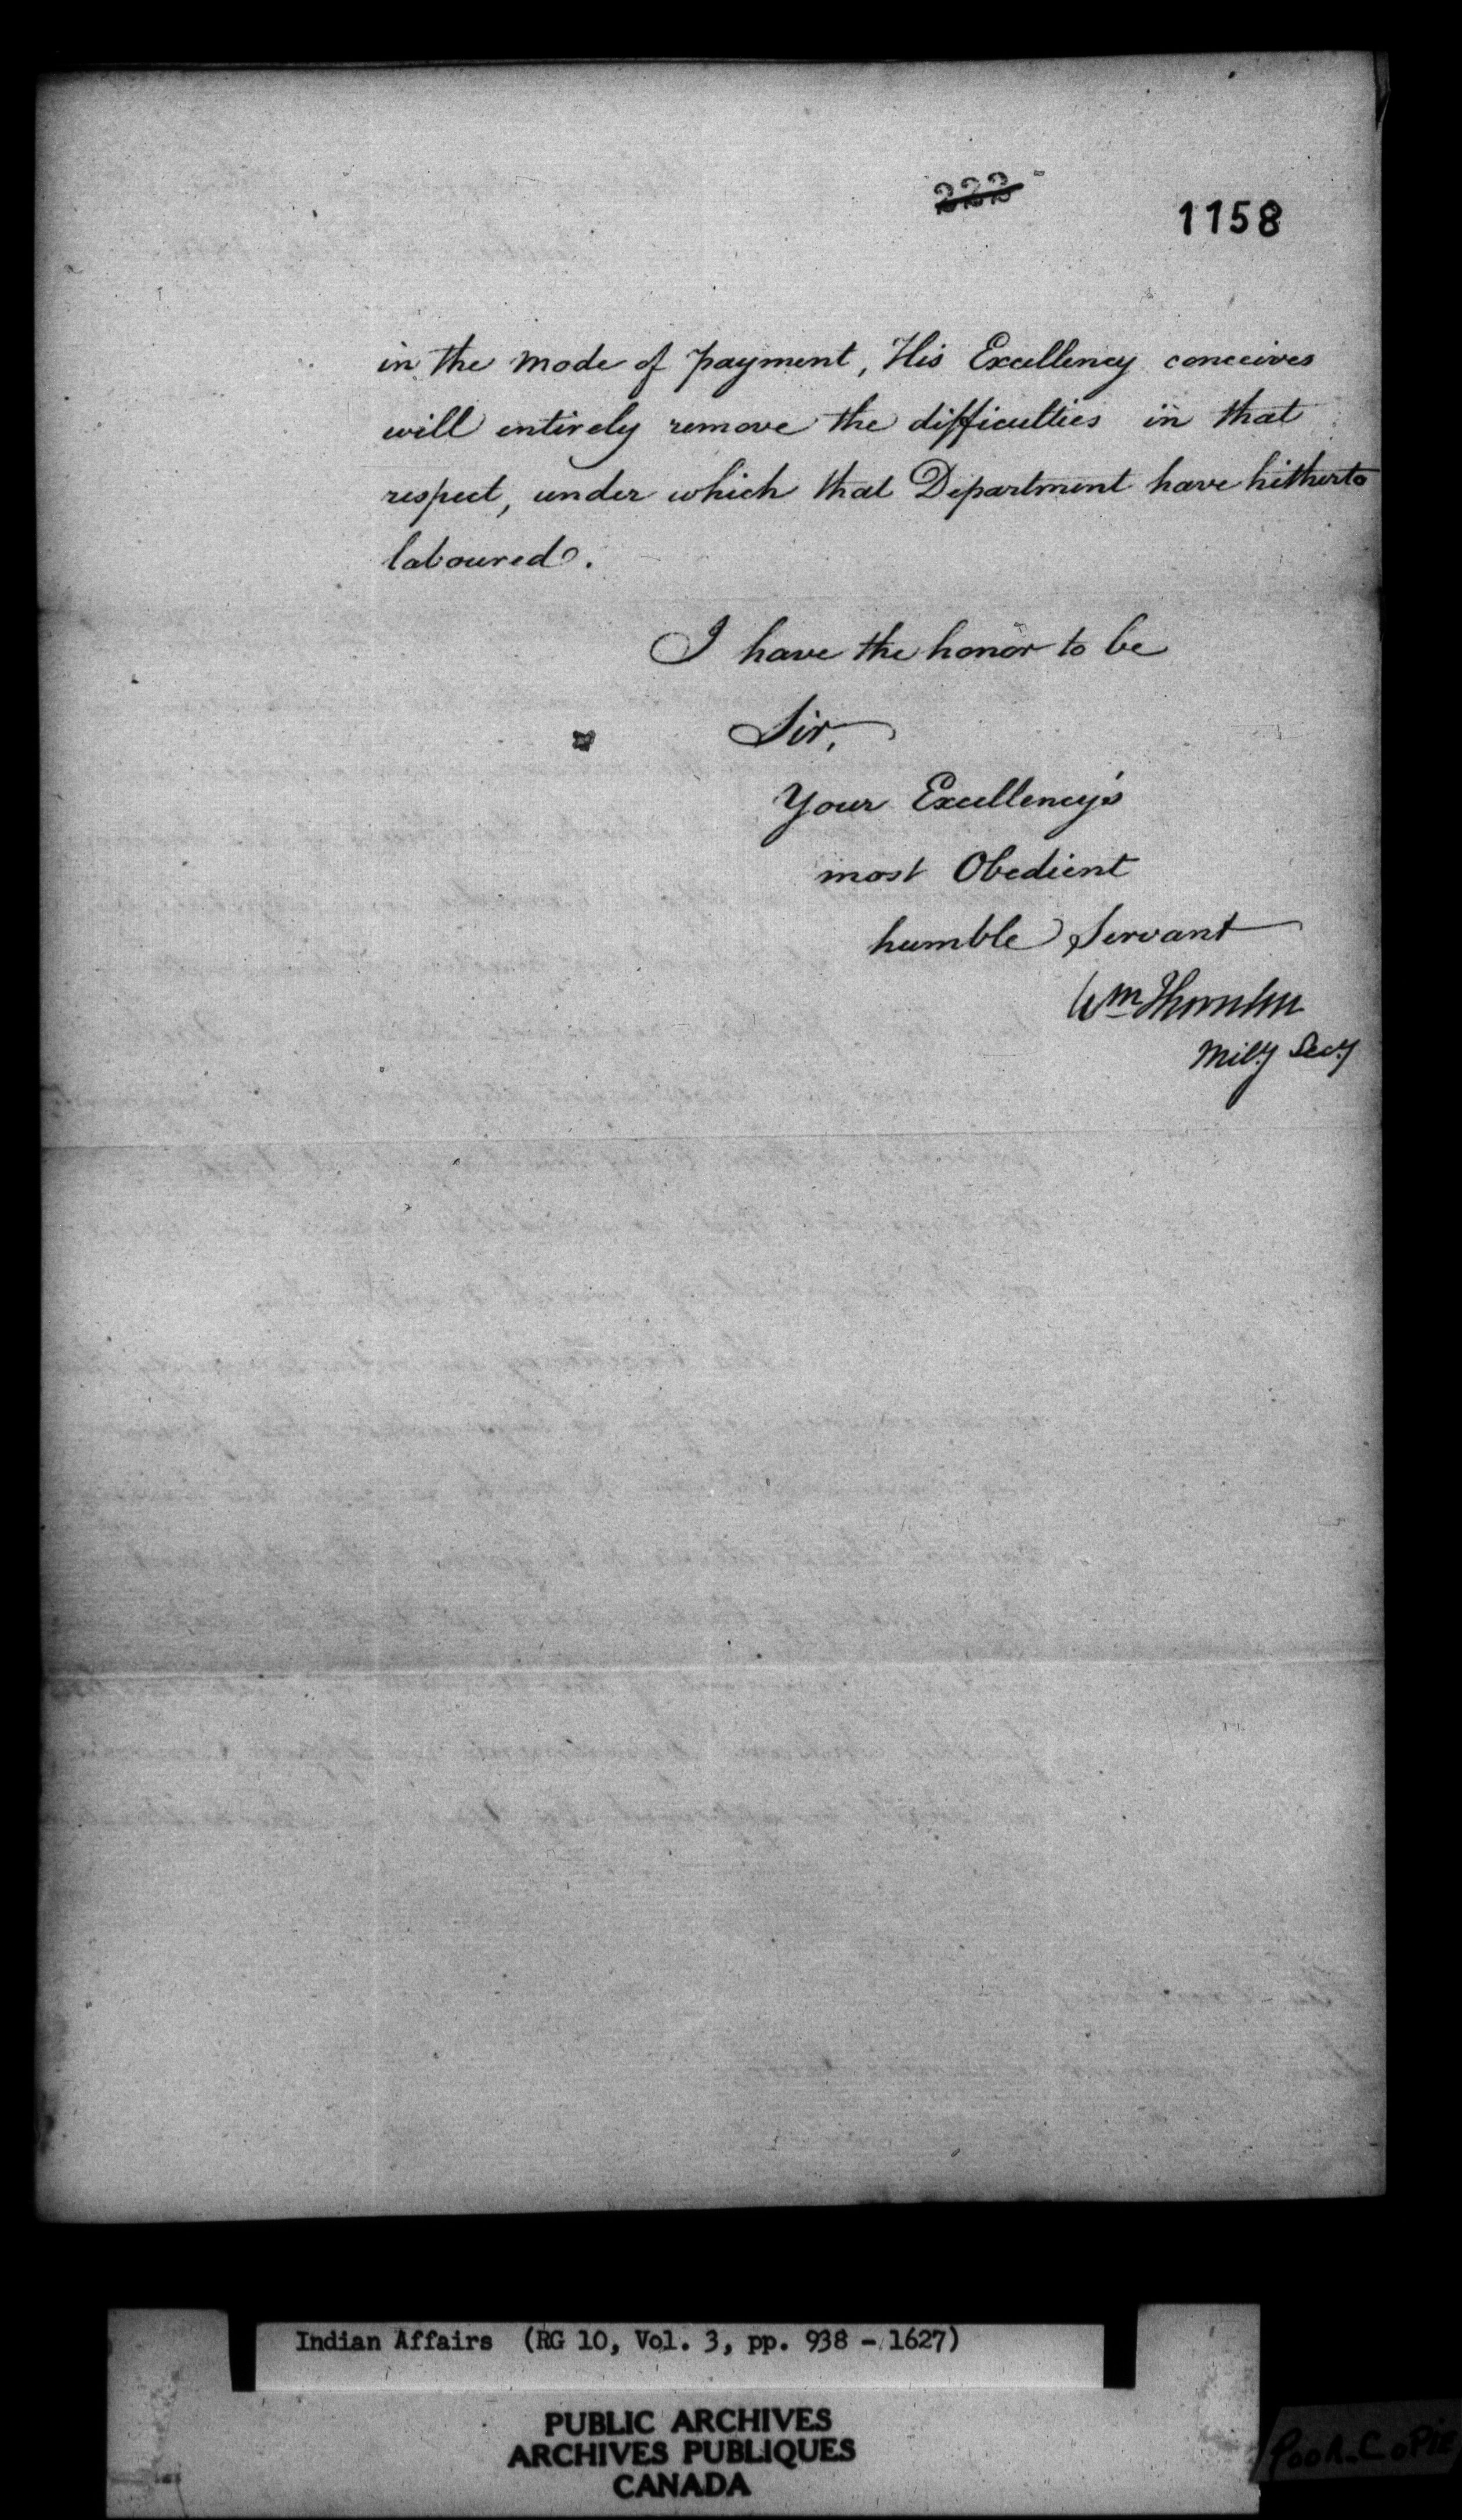 222
1158
in the mode of payment, His Excellency conceives
will entirely remove the difficulties in that
respect, under which that Department have hitherto
laboured.
I have the honor to be
Sir,
Your Excellency's
most Obedient
humble Servant
Wm Thornton
Mily Secy
Indian Affairs (RG 10, Vol. 3, pp. 938 - 1627)
PUBLIC ARCHIVES
ARCHIVES PUBLIQUES
CANADA
POOR COPIE